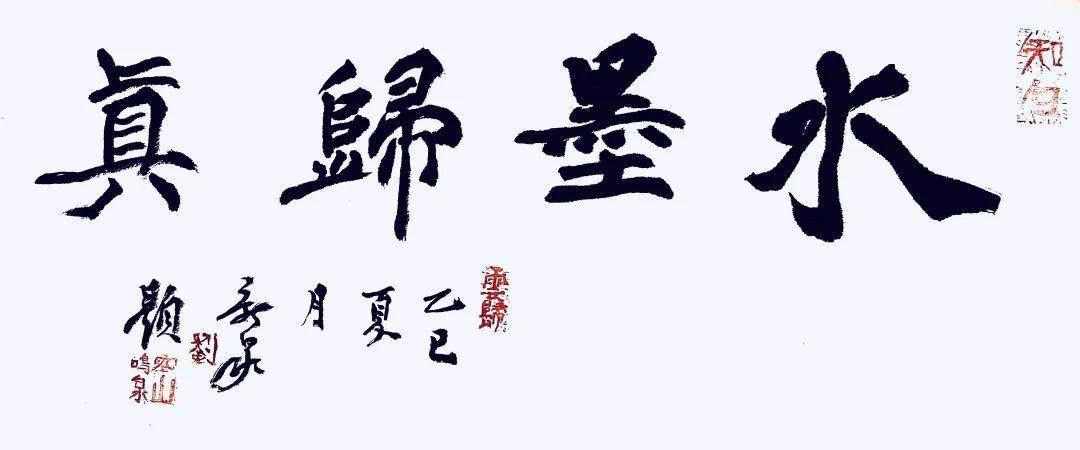 知白
水墨歸真
雲歸
乙巳夏月
泉題
劉
空山鳴泉